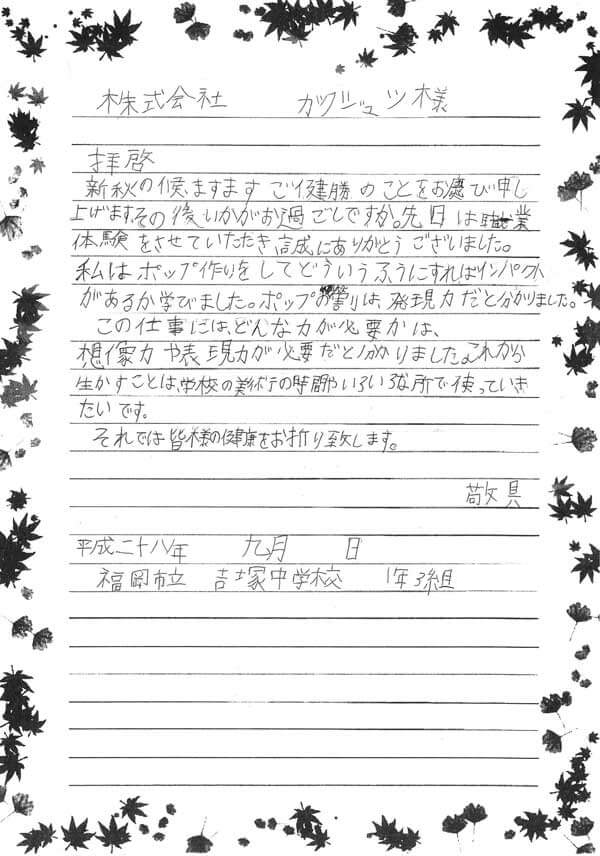 株式会社 カワジュツ様
拝啓
新秋の候、ますます ご健勝 のことをお慶び申し
上げます。その後いかがお過ごしですか。先日は職業
体験をさせていただき誠にありがとうございました。
私はポップ作りをしてどういうふうにすればインパクト
があるか学びました。ポップは、発現力だと分かりました。
この仕事には、どんな力が必要かは、
想像力や表現力が必要だと分かりました。これから
生かすことは、学校の美術の時間やいろいろな所で使っていき
たいです。
それでは皆様の健康をお祈り致します。
敬具
平成二十八年 九月 日
福岡市立 吉塚中学校 1年3組